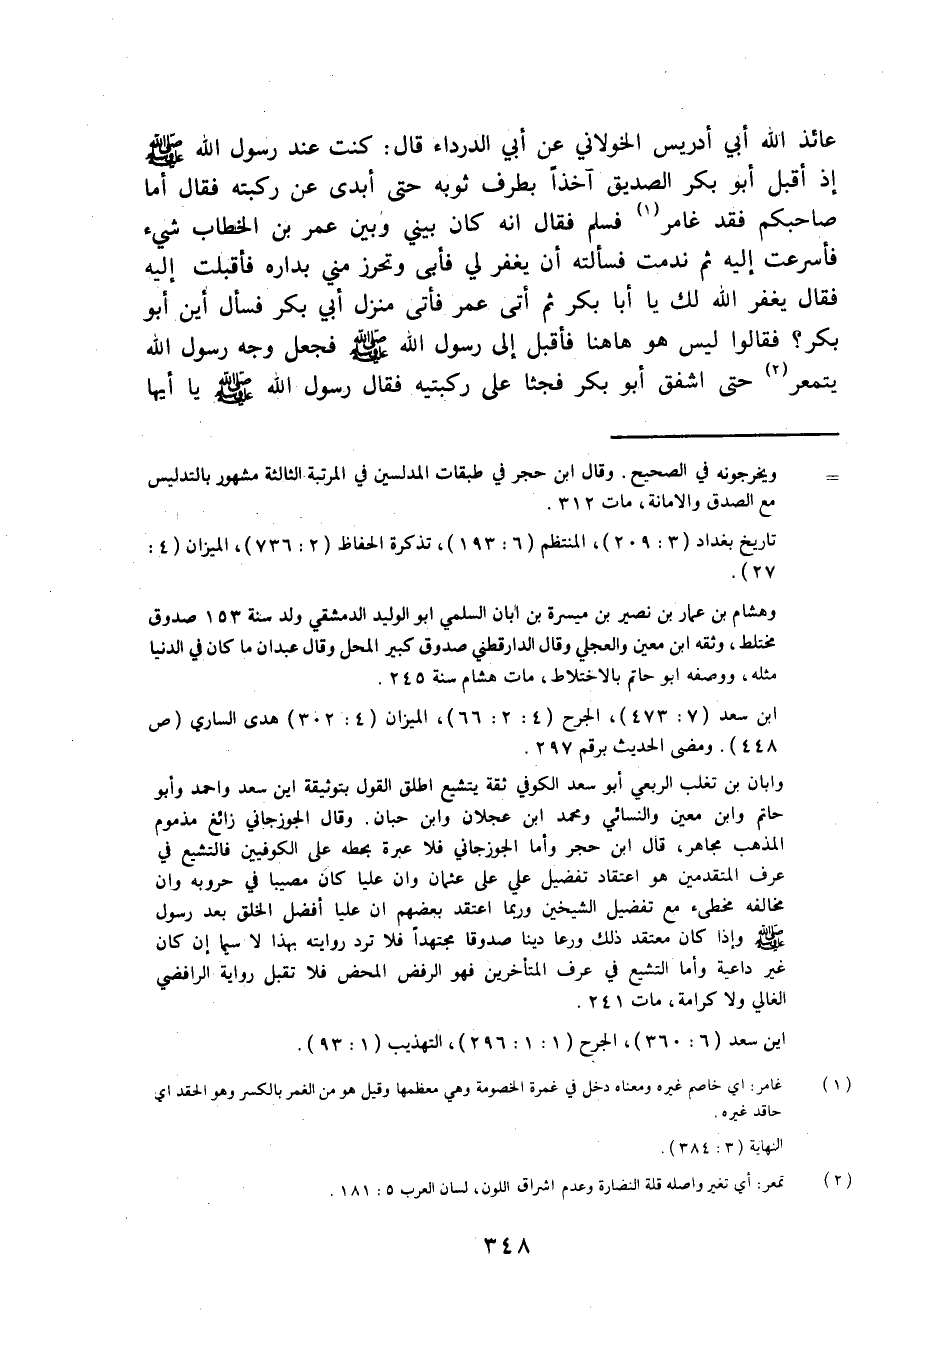 عائذ الله أبي أدريس الخولاني عن أبي الدرداء قال: كنت عند رسول الله ﷺ
إذ أقبل أبو بكر الصديق آخذاً بطرف ثوبه حتى أبدى عن ركبته فقال أما
صاحبكم فقد غامر (١) فسلم فقال انه كان بيني وبين عمر بن الخطاب شيء
فأسرعت إليه ثم ندمت فسألته أن يغفر لي فأبى وتحرز مني بداره فأقبلت إليه
فقال يغفر الله لك يا أبا بكر ثم أتى عمر فأتى منزل أبي بكر فسأل أين أبو
بكر؟ فقالوا ليس هو هاهنا فأقبل إلى رسول الله ﷺ فجعل وجه رسول الله
يتمعر (٢) حتى اشفق أبو بكر فجثا على ركبتيه فقال رسول الله ﷺ يا أيها
= ويخرجونه في الصحيح. وقال ابن حجر في طبقات المدلسين في المرتبة الثالثة مشهور بالتدليس
مع الصدق والامانة، مات ٣١٢.
تاريخ بغداد (٣: ٢٠٩)، المنتظم (٦: ١٩٣)، تذكرة الحفاظ (٢: ٧٣٦)، الميزان (٤:
٢٧).
وهشام بن عمار بن نصير بن ميسرة بن ابان السلمي ابو الوليد الدمشقي ولد سنة ١٥٣ صدوق
مختلط، وثقه ابن معين والعجلي وقال الدارقطني صدوق كبير المحل وقال عبدان ما كان في الدنيا
مثله، ووصفه ابو حاتم بالاختلاط، مات هشام سنة ٢٤٥.
ابن سعد (٧: ٤٧٣)، الجرح (٤: ٢: ٦٦)، الميزان (٤: ٣٠٢) هدى الساري (ص
٤٤٨). ومضى الحديث برقم ٢٩٧.
وابان بن تغلب الربعي أبو سعد الكوفي ثقة يتشيع اطلق القول بتوثيقة اين سعد واحمد وأبو
حاتم وابن معين والنسائي ومحمد ابن عجلان وابن حبان. وقال الجوزجاني زائغ مذموم
المذهب مجاهر، قال ابن حجر وأما الجوزجاني فلا عبرة بحطه على الكوفيين فالتشيع في
عرف المتقدمين هو اعتقاد تفضيل علي على عثمان وان عليا كان مصيبا في حروبه وان
مخالفه مخطىء مع تفضيل الشيخين وربما اعتقد بعضهم ان عليا أفضل الخلق بعد رسول
ﷺ وإذا كان معتقد ذلك ورعا دينا صدوقا مجتهداً فلا ترد روايته بهذا لا سيما إن كان
غير داعية وأما التشيع في عرف المتأخرين فهو الرفض المحض فلا تقبل رواية الرافضي
الغالي ولا كرامة، مات ٢٤١.
اين سعد (٦: ٣٦٠)، الجرح (١: ١: ٢٩٦)، التهذيب (١: ٩٣).
(١) غامر: اي خاصم غيره ومعناه دخل في غمرة الخصومة وهي معظمها وقيل هو من الغمر بالكسر وهو الحقد اي
حاقد غيره.
النهاية (٣: ٣٨٤).
(٢) تمعر: أي تغير واصله قلة النضارة وعدم اشراق اللون، لسان العرب ٥: ١٨١.
٣٤٨